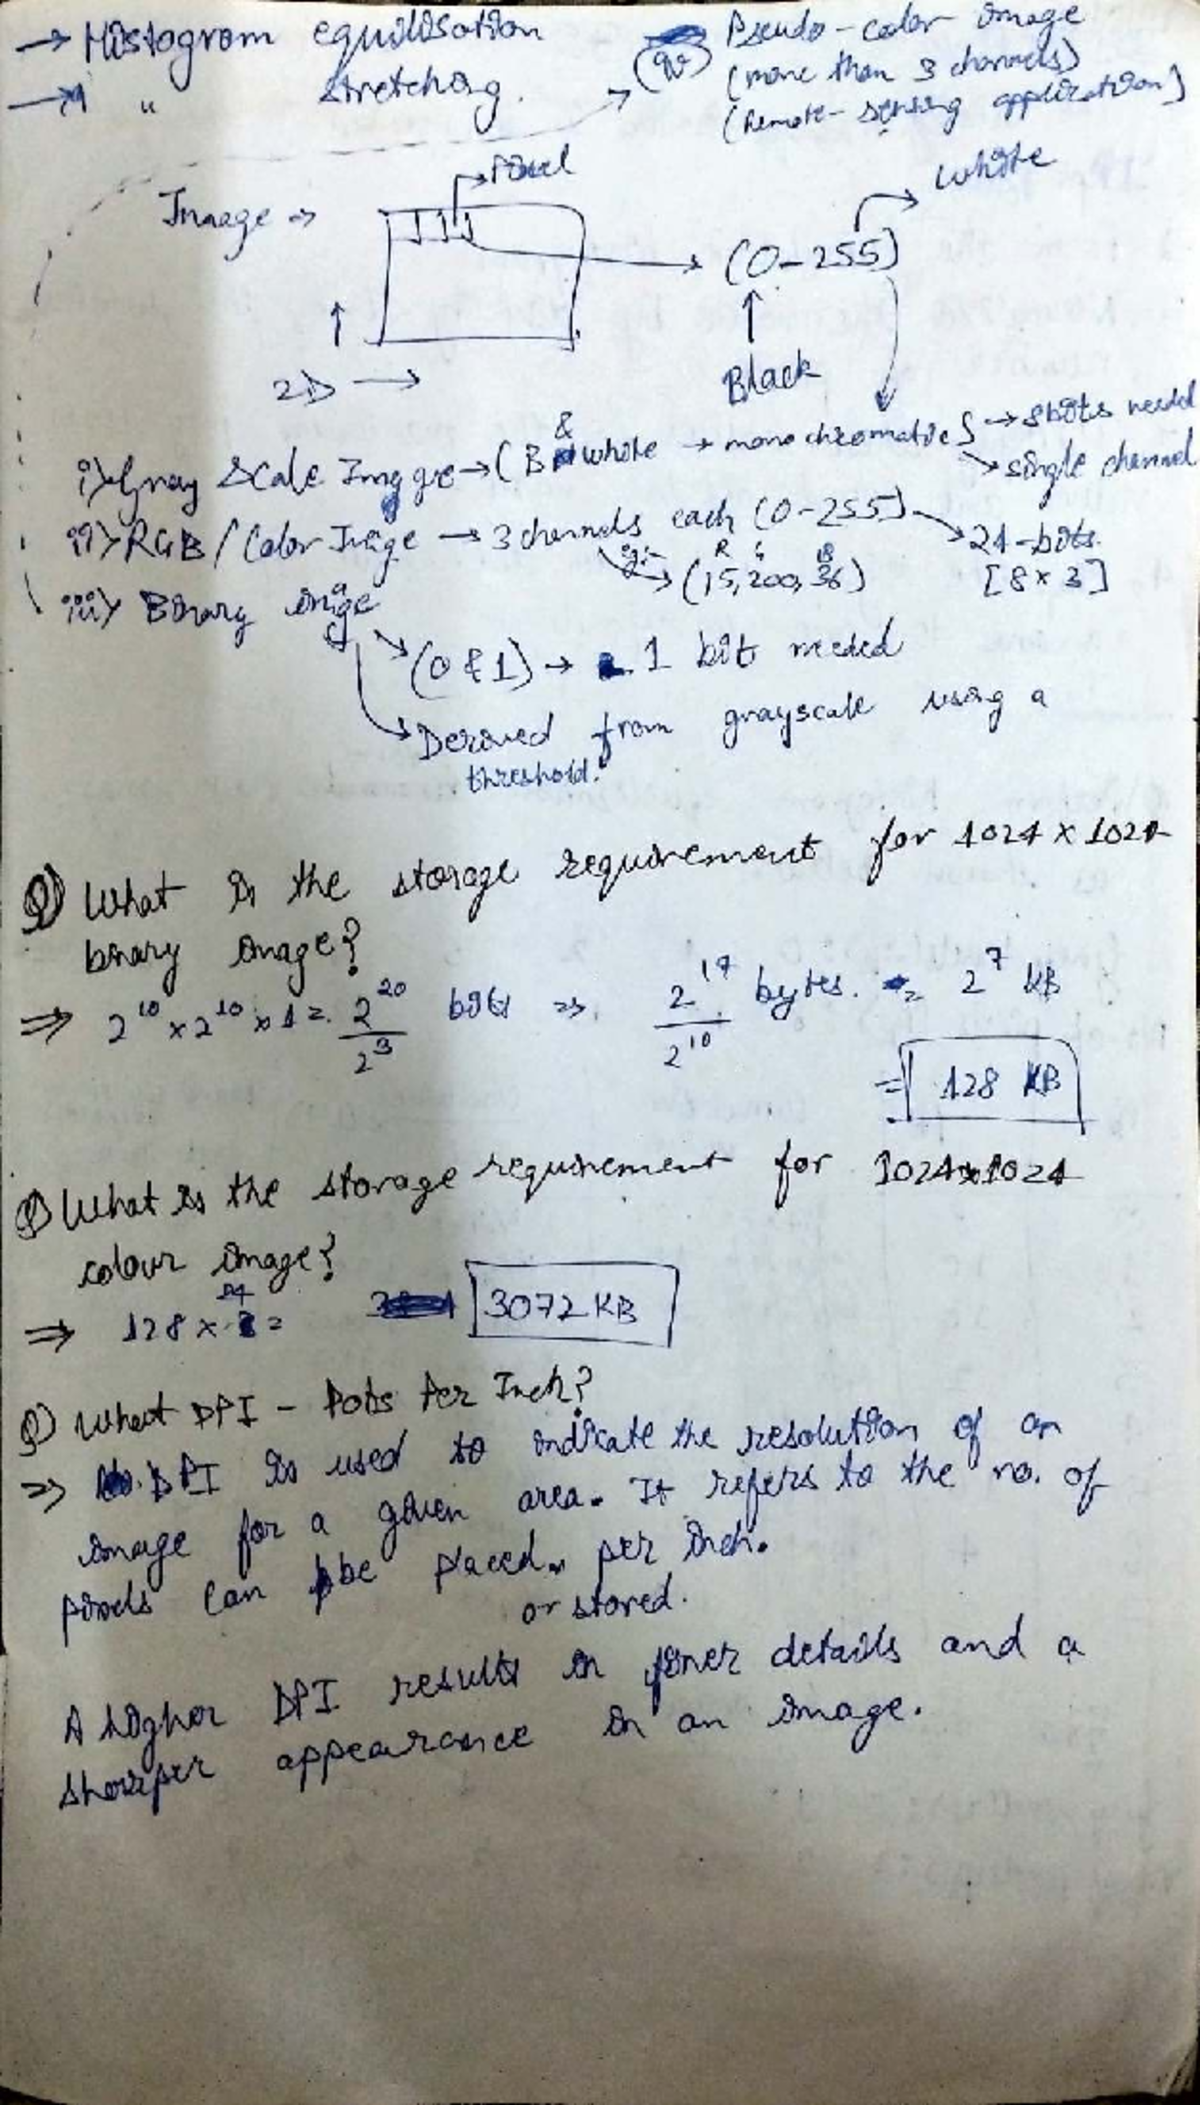 → Histogram equilisation
→ " stretching.
(iv) Pseudo-color image
(more than 3 channels)
(Remote-sensing application)
Image →
Pixel
(0-255)
White
Black
2D →
i) Gray Scale Imgge → (B & white → monochromatic) → 8 bits needed
→ single channel
ii) RGB / Color Image → 3 channels each (0-255) → 24-bits.
[8 × 3]
eg:- → (15, 200, 36)
R G B
iii) Binary image
→ (0 & 1) → 1 bit needed
→ Derived from grayscale using a
threshold.
Q) What is the storage requirement for 1024 × 1024
binary image?
⇒ 2^10 × 2^10 × 1 = 2^20 / 2^3 bits ⇒ 2^17 / 2^10 bytes. = 2^7 KB
= 128 KB
Q) What is the storage requirement for 1024×1024
colour image?
⇒ 128 × 24 = 3072 KB
Q) What DPI - Dots Per Inch?
⇒ DPI is used to indicate the resolution of an
image for a given area. It refers to the no. of
pixels can be placed per inch.
or stored.
A higher DPI results in finer details and a
sharper appearance in an image.